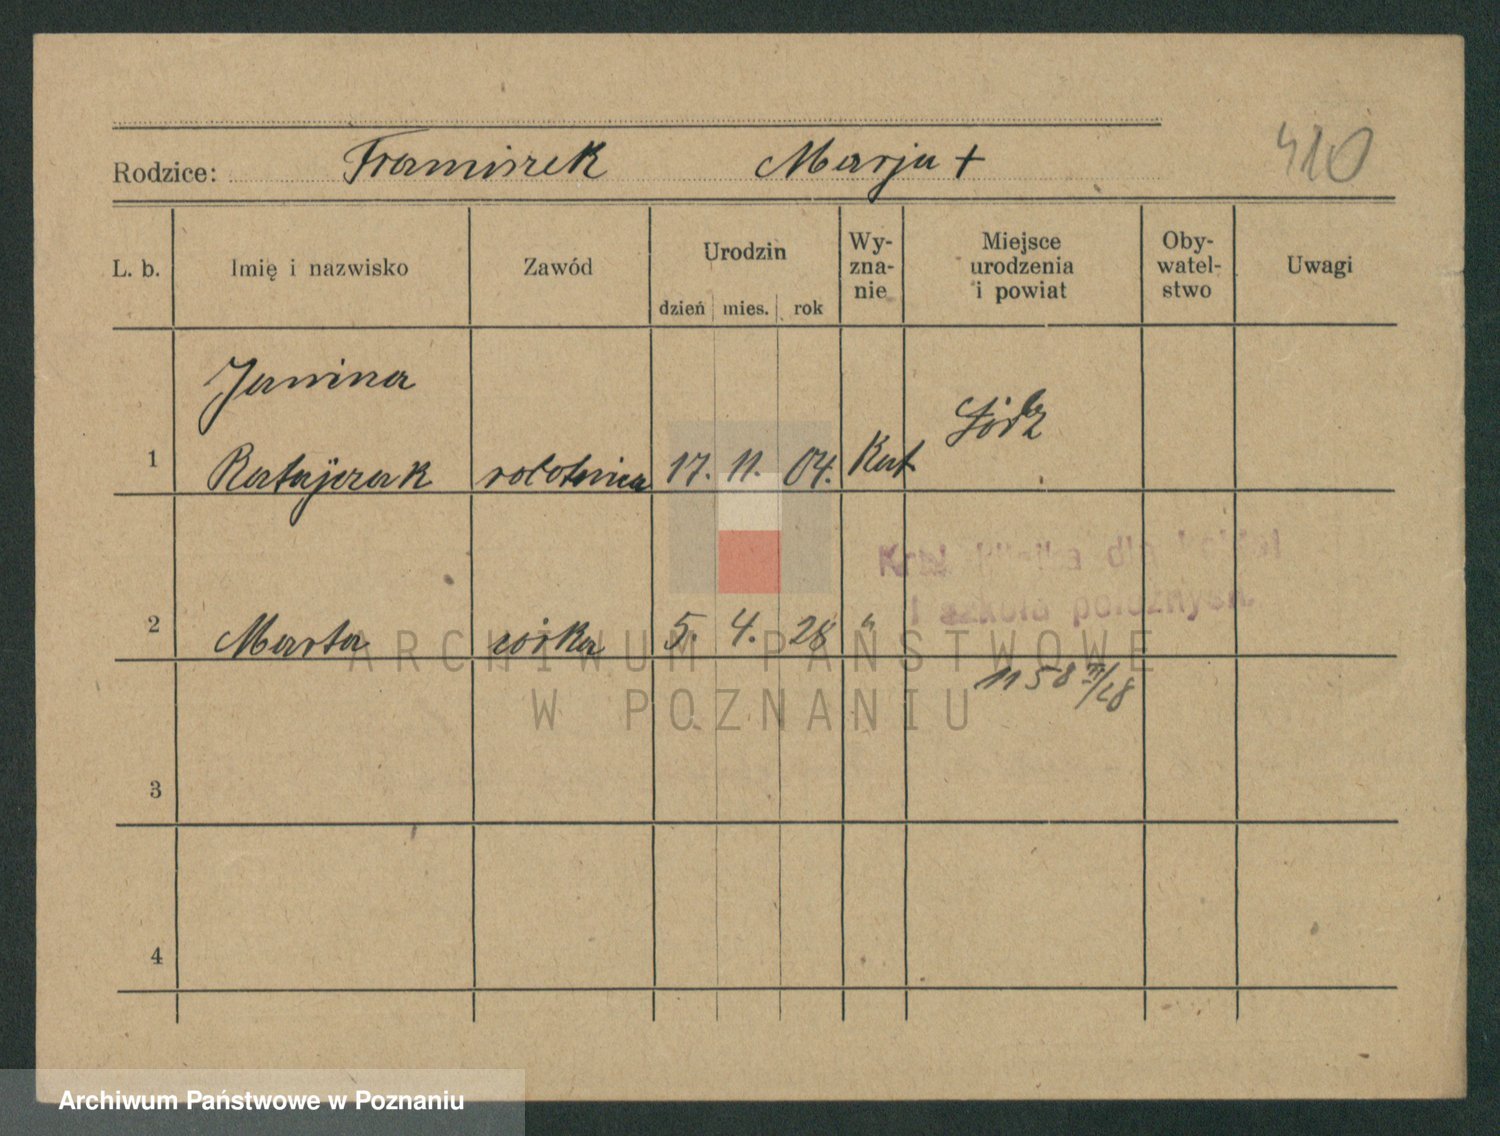 410
Rodzice: Franciszek Marja +
L. b. Imię i nazwisko Zawód Urodzin dzień mies. rok Wy-zna-nie Miejsce urodzenia i powiat Oby-watel-stwo Uwagi
Janina
1 Ratajczak robotnica 17. 11. 04. Kat Łódź
Kraj. klinika dla kobiet
i szkoła położnych.
2 Marta córka 5. 4. 28 "
1158
3
4
ARCHIWUM PAŃSTWOWE
W POZNANIU
Archiwum Państwowe w Poznaniu